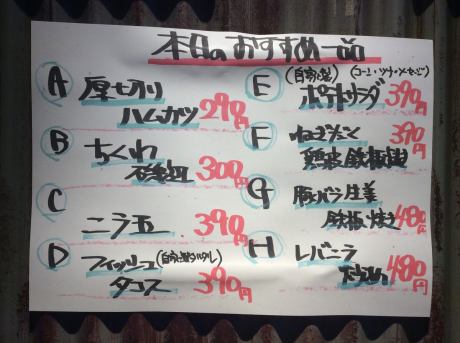 本日のおすすめ一品
A 厚切り
ハムカツ 290円
B ちくわ
磯辺 300円
C
ニラ玉 390円
D フィッシュ(自家製タルタル)
タコス 390円
E (自家製) (コーン・ツナ・ソーセージ)
ポテトサラダ 390円
F ねぎたこ 390円
鉄板焼
G 豚バラ生姜
鉄板焼き 480円
H レバニラ
炒め 480円